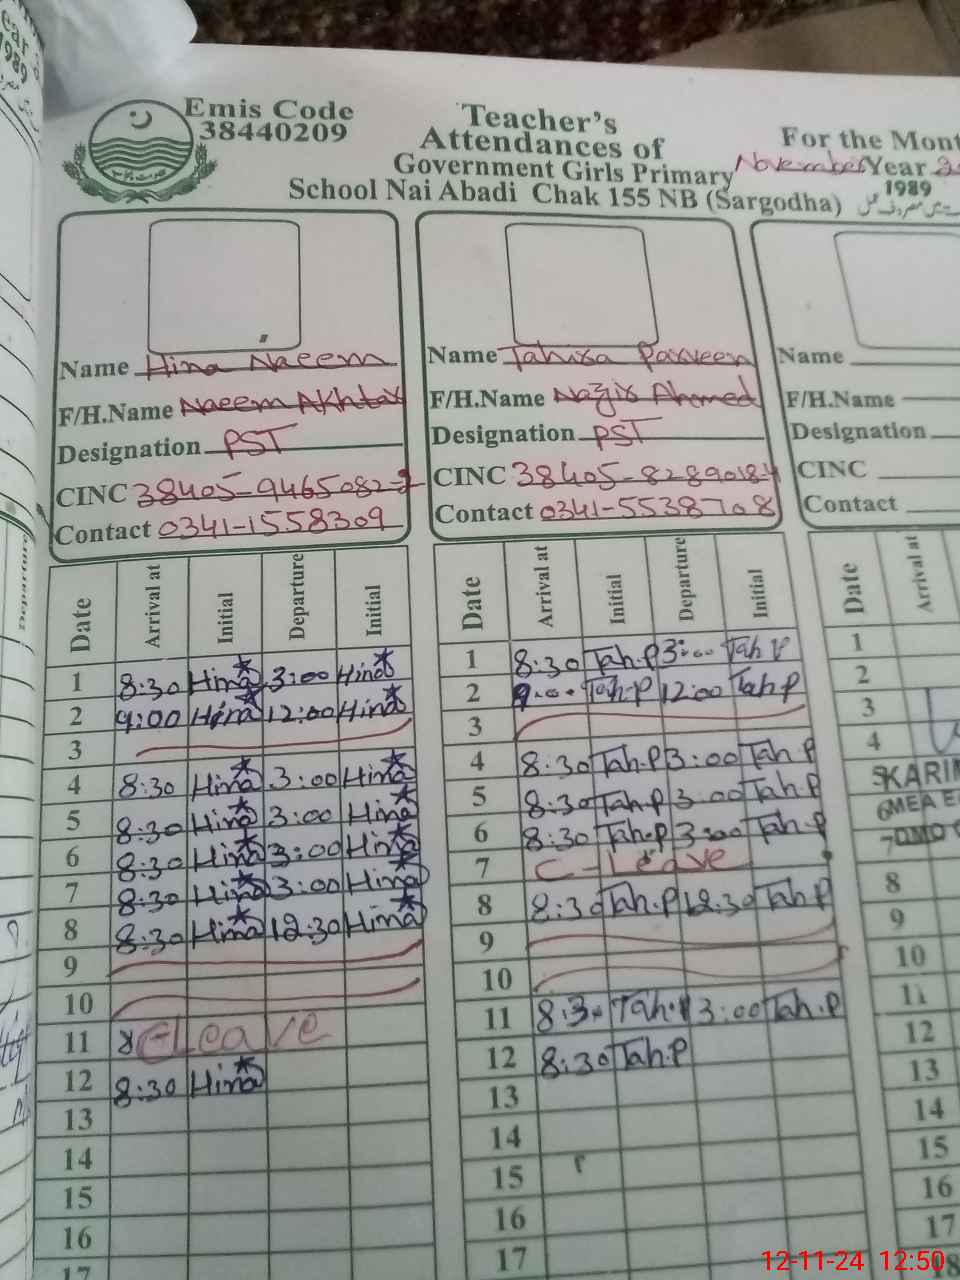 Emis Code
38440209
Teacher's
Attendances of
Government Girls Primary
School Nai Abadi Chak 155 NB (Sargodha)
For the Mont
November Year 2
1989
Name Hina Naeem
F/H.Name Naeem Akhtar
Designation PST
CINC 38405-9465082-2
Contact 0341-1558309
Name Tahira Parveen
F/H.Name Nazir Ahmed
Designation PST
CINC 38405-8289018-4
Contact 0341-5538708
Name
F/H.Name
Designation
CINC
Contact
Date Arrival at Initial Departure Initial
1 8:30 Hina 3:00 Hina
2 9:00 Hina 12:00 Hina
3
4 8:30 Hina 3:00 Hina
5 8:30 Hina 3:00 Hina
6 8:30 Hina 3:00 Hina
7 8:30 Hina 3:00 Hina
8 8:30 Hina 12:30 Hina
9
10
11 8 C-Leave
12 8:30 Hina
13
14
15
16
17
Date Arrival at Initial Departure Initial
1 8:30 Tah.P 3:00 Tah P
2 9:00 Tah.P 12:00 Tah.P
3
4 8:30 Tah.P 3:00 Tah.P
5 8:30 Tah.P 3:00 Tah.P
6 8:30 Tah.P 3:00 Tah.P
7 C-Leave
8 8:30 Tah.P 12:30 Tah.P
9
10
11 8:30 Tah.P 3:00 Tah.P
12 8:30 Tah.P
13
14
15
16
17
Date Arrival at
1
2
3
4
5 KARIM
6 MEA
7 DMO
8
9
10
11
12
13
14
15
16
17
18
12-11-24 12:50